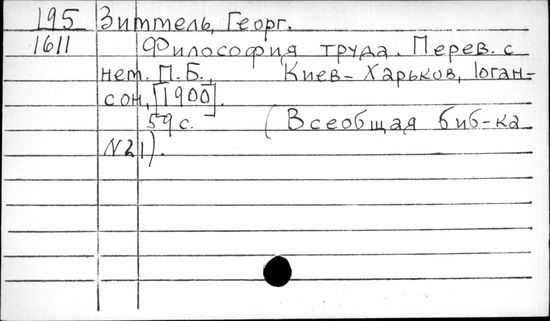 195 Зиттель, Георг.
1611 Философия труда. Перев. с
нем. П.Б., Киев-Харьков, Iоган-
сон, [1900].
59 с. (Всеобщая биб-ка
N21).